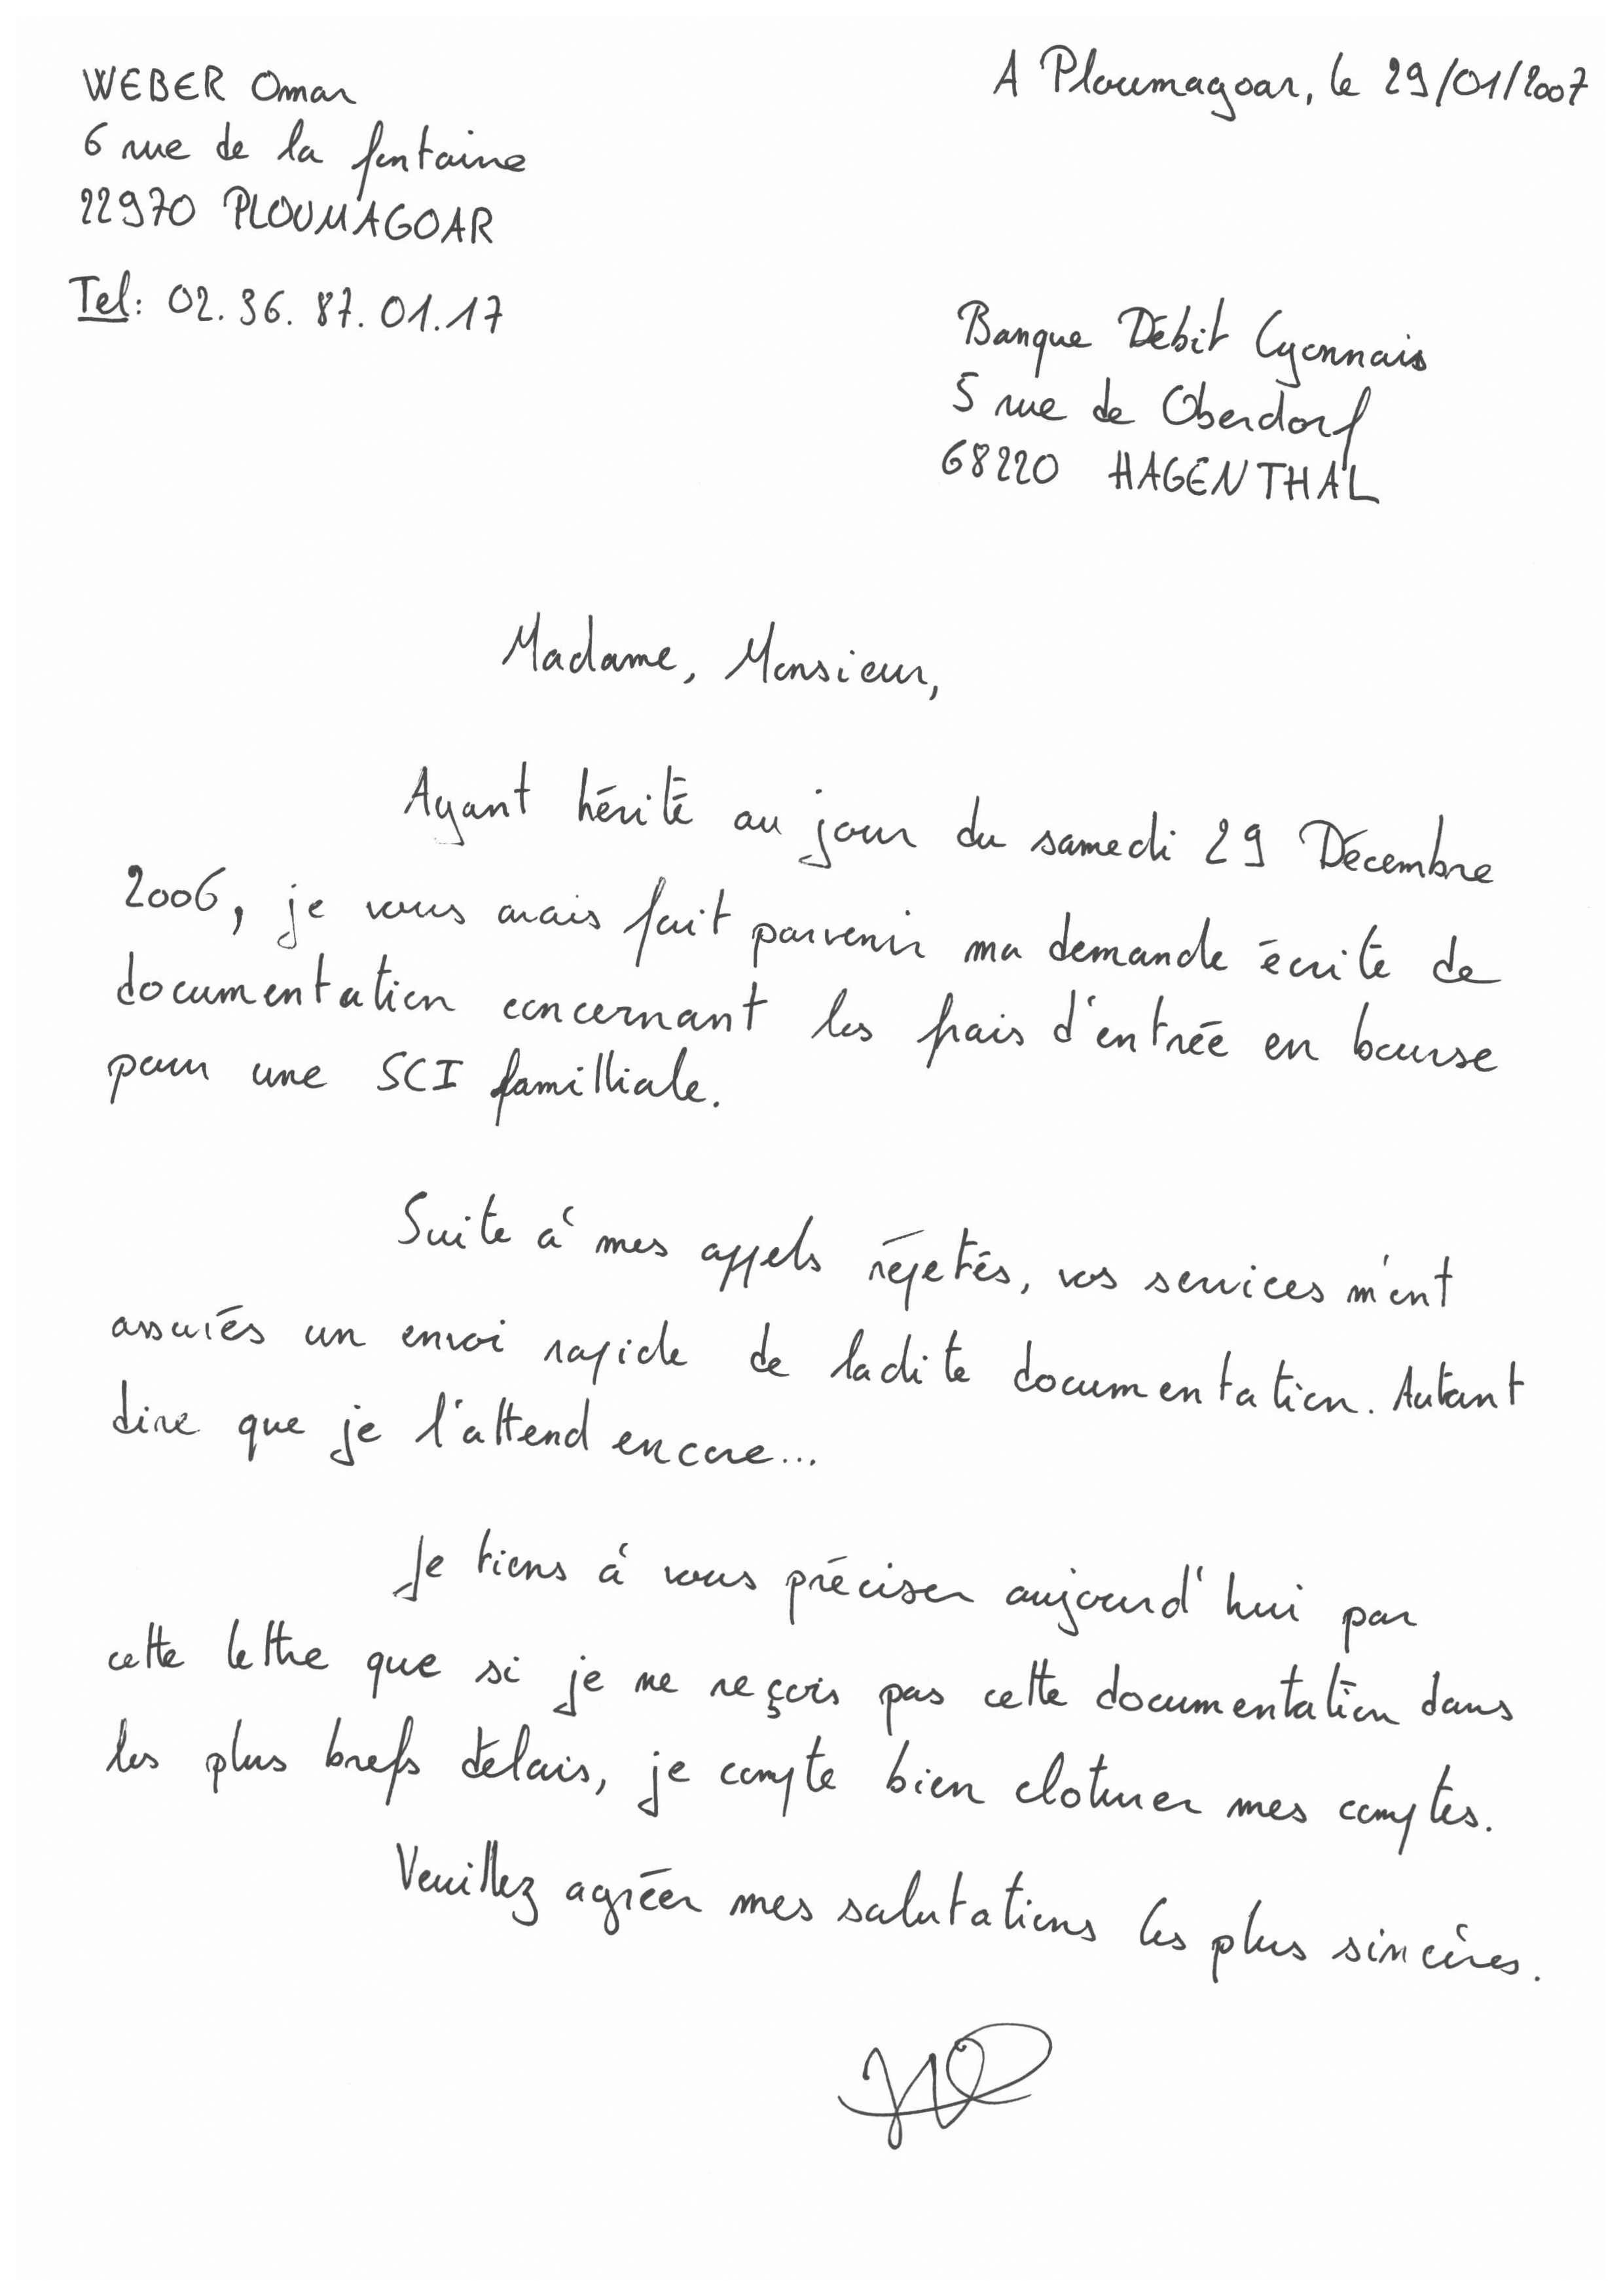 WEBER Omar
6 rue de la fontaine
22970 PLOUMAGOAR
Tel: 02.36.87.01.17
A Ploumagoar, le 29/01/2007
Banque Débit Lyonnais
5 rue de Oberdorf
68220 HAGENTHAL
Madame, Monsieur,
Ayant hérité au jour du samedi 29 Décembre
2006, je vous avais fait parvenir ma demande écrite de
documentation concernant les frais d'entrée en bourse
pour une SCI familliale.
Suite à mes appels répetés, vos services m'ont
assurés un envoi rapide de ladite documentation. Autant
dire que je l'attend encore...
Je tiens à vous préciser aujourd'hui par
cette lettre que si je ne reçois pas cette documentation dans
les plus brefs délais, je compte bien cloturer mes comptes.
Veuillez agréer mes salutations les plus sincères.